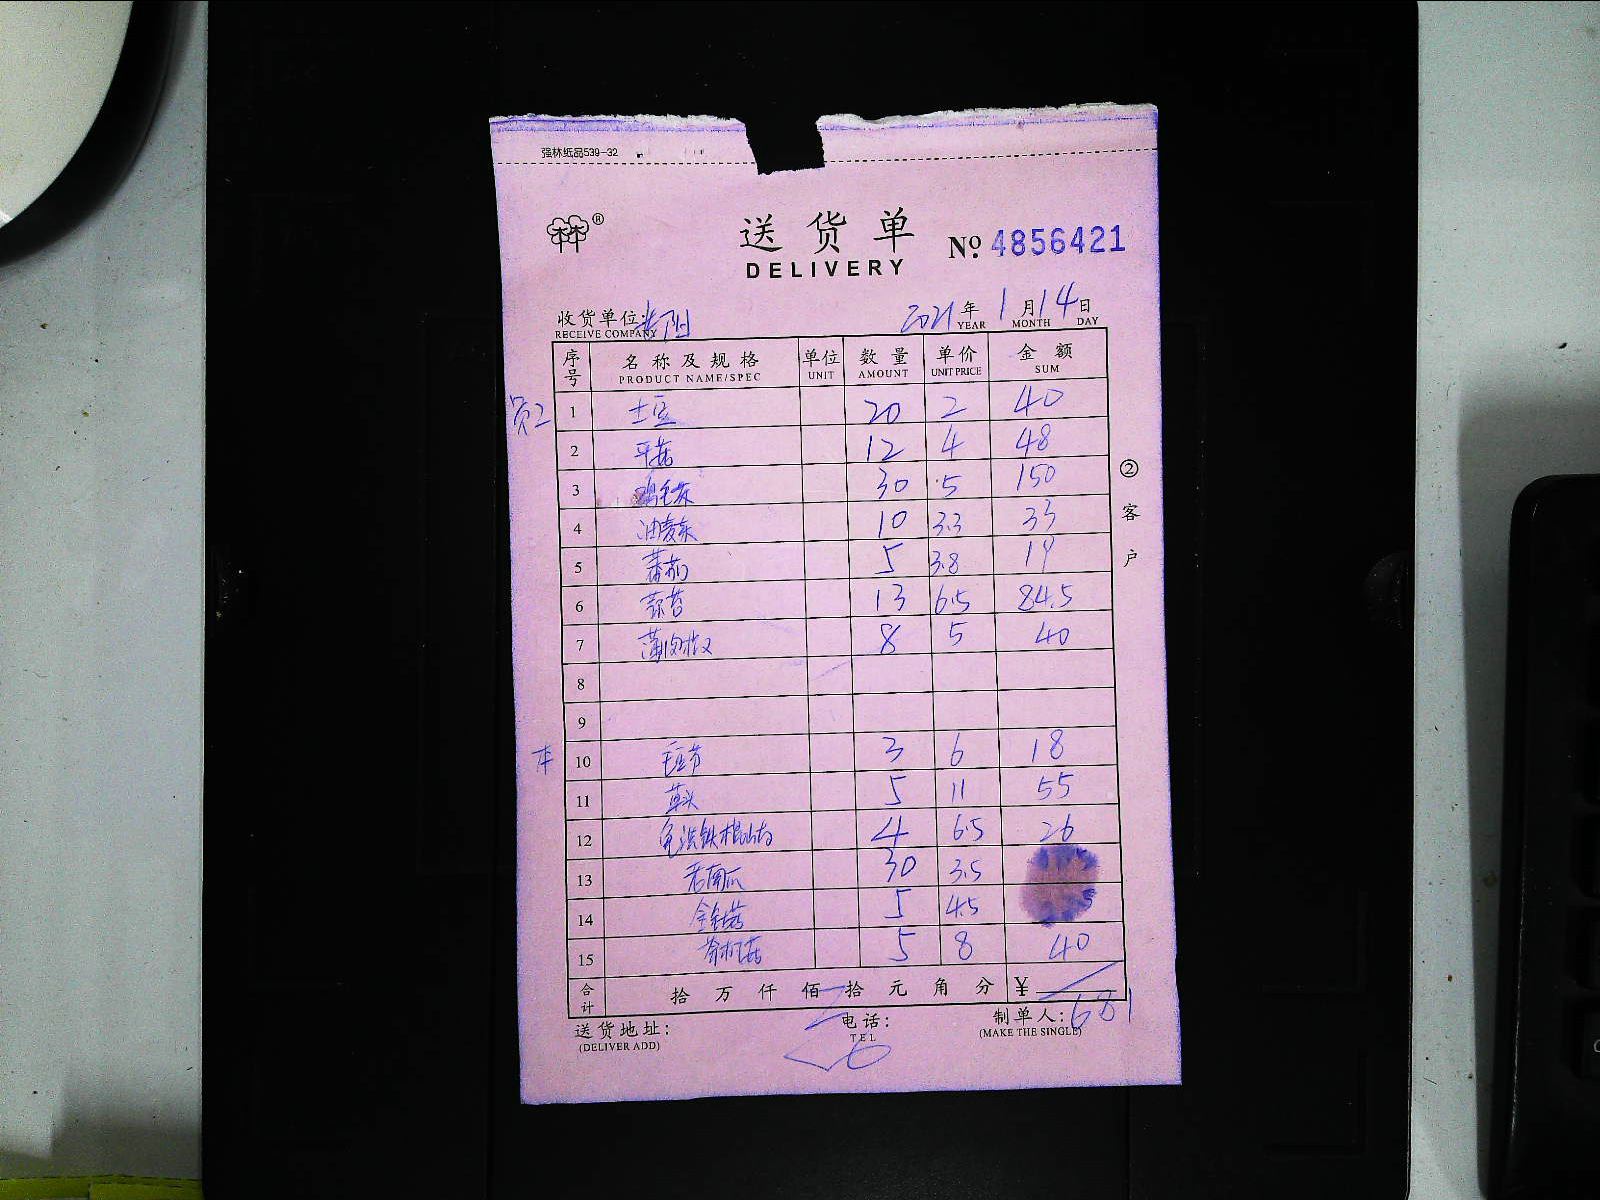 强林纸品539-32
送货单
DELIVERY
№ 4856421
收货单位: 2021年1月14日
RECEIVE COMPANY YEAR MONTH DAY
序号 名称及规格 单位 数量 单价 金额
PRODUCT NAME/SPEC UNIT AMOUNT UNIT PRICE SUM
员工 1 土豆 20 2 40
2 平菇 12 4 48
3 鸡毛菜 30 5 150
4 油麦菜 10 3.3 33
5 蕃茄 5 3.8 19
6 蒜苔 13 6.5 84.5
7 薄肉椒 8 5 40
8
9
本 10 毛豆节 3 6 18
11 草头 5 11 55
12 免洗铁棍山药 4 6.5 26
13 老南瓜 30 3.5
14 金针菇 5 4.5
15 茶树菇 5 8 40
合计 拾万仟佰拾元角分 ¥
681
送货地址: 电话: 制单人:
(DELIVER ADD) TEL (MAKE THE SINGLE)
②客户